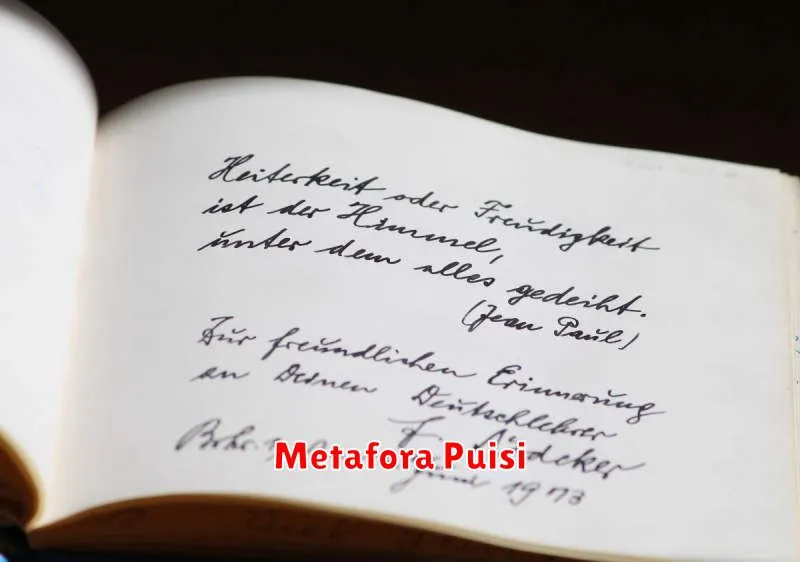 Heiterkeit oder Freudigkeit
ist der Himmel,
unter dem alles gedeiht.
(Jean Paul)
Zur freundlichen Erinnerung
an Deinen Deutschlehrer
F.
Juni 1973
Metafora Puisi